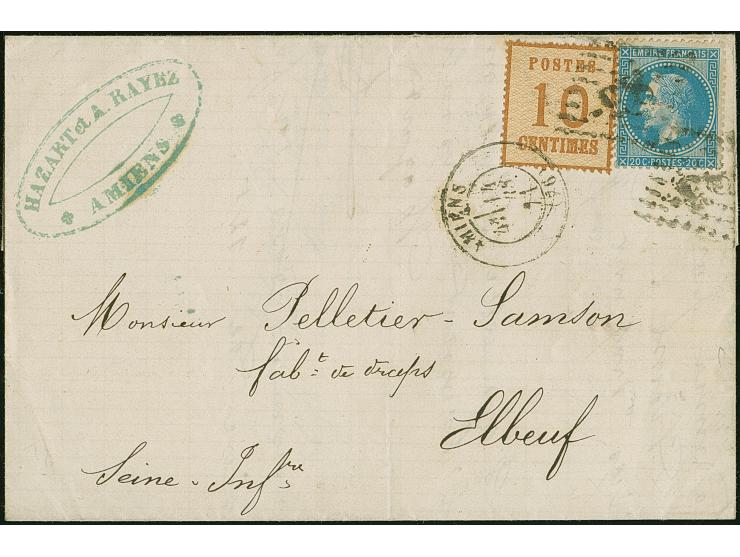 HAZART et A. RAYEZ
* AMIENS *
POSTES
10
CENTIMES
EMPIRE FRANÇAIS
20 C - POSTES - 20 C
AMIENS
Monsieur Pelletier-Samson
fabt de draps
Elbeuf
Seine-Infre